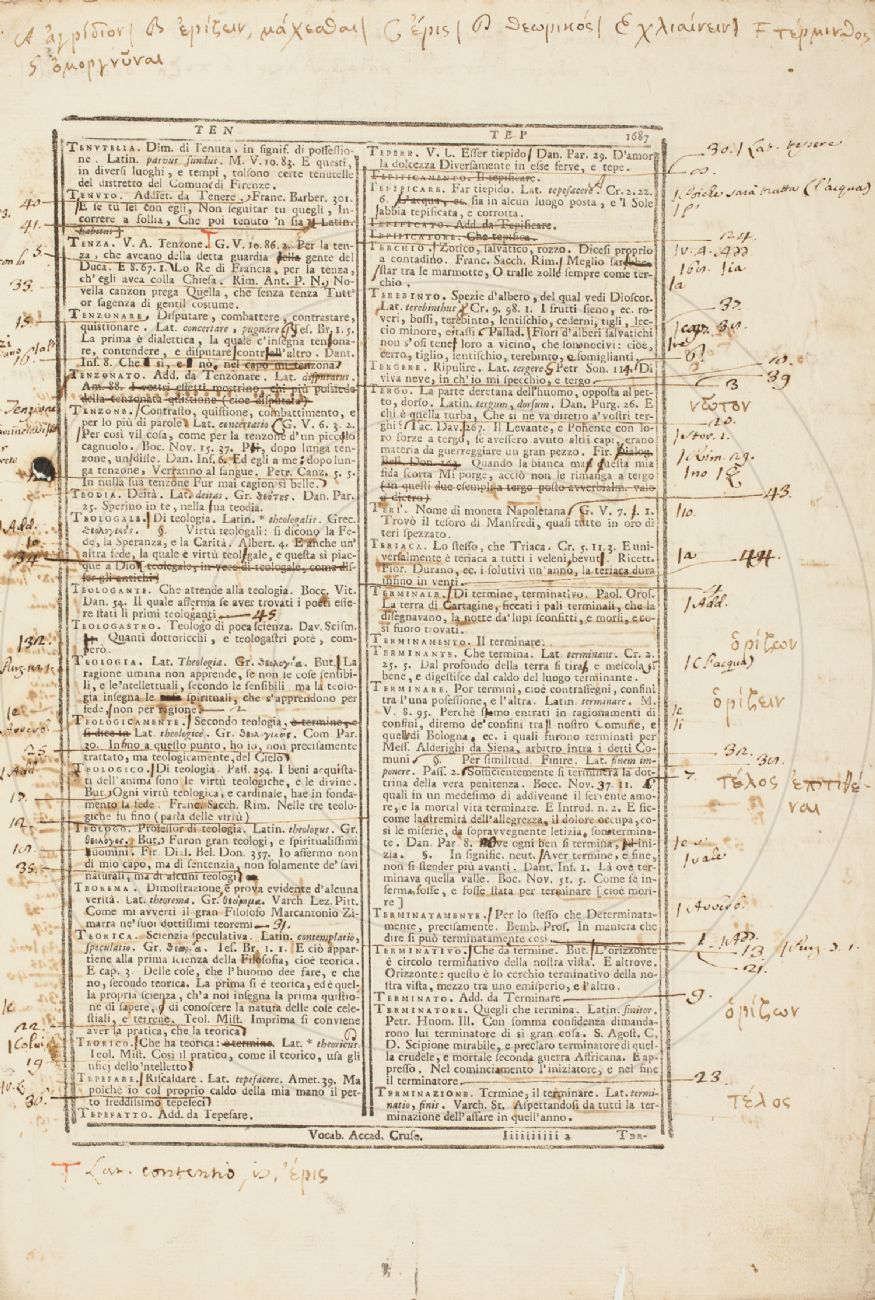 A ἀγρίδιον| B ἐρίζειν, μάχεσθαι| C ἔρις| D θεωρικός| E χλιαίνειν| F τέρμινθος
ὀμοργνῦναι
TEN
TENUTELLA. Dim. di Tenuta, in signif. di possessio-
ne. Latin. parvus fundus. M. V. 10. 83. E questi,
in diversi luoghi, e tempi, tolsono certe tenutelle
del distretto del Comune di Firenze.
TENUTO. Addiet. da Tenere. Franc. Barber. 301.
E se tu sei con egli, Non seguitar tu quegli, In-
correre a follia, Che poi tenuto 'n sia Latin.
habitus
TENZA. V. A. Tenzone. G. V. 10. 86. 2. Per la ten-
za, che aveano della detta guardia della gente del
Duca. E 8. 67. 1. Lo Re di Francia, per la tenza,
ch'egli avea colla Chiesa. Rim. Ant. P. N. No-
vella canzon prega Quella, che senza tenza Tutt'
or sagenza di gentil costume.
TENZONARE. Disputare, combattere, contrastare,
quistionare. Lat. concertare, pugnare. Tes. Br. 1. 5.
La prima è dialettica, la quale c'insegna tenzona-
re, contendere, e disputare contr all'altro. Dant.
Inf. 8. Che 'l sì, e 'l nò, nel capo mi tenzona.
TENZONATO. Add. da Tenzonare. Lat. disputatus.
Am. 88. I vostri effetti mostrino, chi più possiede
della tenzonata quistione (cioè disputata)
TENZONE. Contrasto, quistione, combattimento, e
per lo più di parole. Lat. concertatio. G. V. 6. 3. 2.
Per così vil cosa, come per la tenzone d'un piccolo
cagnuolo. Boc. Nov. 15. 37. Pur, dopo lunga ten-
zone, un disse. Dan. Inf. 6. Ed egli a me: dopo lun-
ga tenzone, Verranno al sangue. Petr. Canz. 5. 5.
In nulla sua tenzone Fur mai cagion sì belle.
TEODIA. Deità. Lat. deitas. Gr. θεότης. Dan. Par.
25. Sperino in te, nella sua teodia.
TEOLOGALE. Di teologia. Latin. * theologalis. Grec.
θεολογικός. §. Virtù teologali: si dicono la Fe-
de, la Speranza, e la Carità. Albert. 4. E anche un'
altra fede, la quale è virtù teologale, e questa si piac-
que a Dio [teologale, in vece di teologale, come dis-
ser gli antichi]
TEOLOGANTE. Che attende alla teologia. Bocc. Vit.
Dan. 54. Il quale afferma se aver trovati i poeti esse-
re stati li primi teologanti. 45
TEOLOGASTRO. Teologo di poca scienza. Dav. Scism.
Quanti dottoricchi, e teologastri potè, com-
però.
TEOLOGIA. Lat. Theologia. Gr. θεολογία. But. La
ragione umana non apprende, se non le cose sensibi-
li, e le 'ntellettuali, secondo le sensibili ma la teolo-
gia insegna le spirituali, che s'apprendono per
fede, non per ragione.
TEOLOGICAMENTE. Secondo teologia, e termine, e
si dice in Lat. theologicè. Gr. θεολογικῶς. Com. Par.
30. Infino a questo punto, ho io, non precisamente
trattato, ma teologicamente, del Cielo
TEOLOGICO. Di teologia. Pass. 294. I beni acquista-
ti dell'anima sono le virtù teologiche, e le divine.
But. Ogni virtù teologica, e cardinale, hae in fonda-
mento la fede. Franc. Sacch. Rim. Nelle tre teolo-
giche fu fino (parla delle virtù)
TEOLOGO. Professor di teologia. Latin. theologus. Gr.
θεολόγος. But. Furon gran teologi, e spiritualissimi
uomini. Fir. Dial. Bel. Don. 357. Io affermo non
di mio capo, ma di sentenzia, non solamente de' savi
naturali, ma di alcuni teologi
TEOREMA. Dimostrazione, e prova evidente d'alcuna
verità. Lat. theorema. Gr. θεώρημα. Varch. Lez. Pitt.
Come mi avvertì il gran Filosofo Marcantonio Zi-
marra ne' suoi dottissimi teoremi 31.
TEORICA. Scienzia speculativa. Latin. contemplatio,
speculatio. Gr. θεωρία. Tes. Br. 1. 1. E ciò appar-
tiene alla prima scienza della Filosofia, cioè teorica.
E cap. 3. Delle cose, che l'huomo dee fare, e che
no, secondo teorica. La prima si è teorica, ed è quel-
la propria scienza, ch'a noi insegna la prima quistio-
ne di sapere, di conoscere la natura delle cose cele-
stiali, e terrene. Teol. Mist. Imprima si conviene
aver la pratica, che la teorica
TEORICO. Che ha teorica: e termine. Lat. * theoricus.
Teol. Mist. Così il pratico, come il teorico, usa gli
ufici dello 'ntelletto
TEPEFARE. Riscaldare. Lat. tepefacere. Amet. 39. Ma
poichè io col proprio caldo della mia mano il pet-
to freddissimo tepefeci
TEPEFATTO. Add. da Tepefare.
TEP 1687
TEPERE. V. L. Esser tiepido. Dan. Par. 29. D'amor
la dolcezza Diversamente in esse ferve, e tepe.
TEPIFICAMENTO. Il tepificare.
TEPIFICARE. Far tiepido. Lat. tepefacere. Cr. 2. 22.
6. L'acqua, ec. sia in alcun luogo posta, e 'l Sole
l'abbia tepificata, e corrotta.
TEPIFICATO. Add. da Tepificare.
TEPIFICATORE. Che tepifica.
TERCHIO. Zotico, salvatico, rozzo. Dicesi proprio
a contadino. Franc. Sacch. Rim. Meglio sarebbe
star tre le marmotte, O tralle zolle sempre come ter-
chio.
TEREBINTO. Spezie d'albero, del qual vedi Dioscor.
Lat. terebinthus. Cr. 9. 98. 1. I frutti sieno, ec. ro-
veri, bossi, terebinto, lentischio, cederni, tigli, lec-
cio minore, ed assi. Pallad. Fiori d'alberi salvatichi
non s'osi tenere loro a vicino, che sono nocivi: cioè,
cerro, tiglio, lentischio, terebinto, e somiglianti.
TERGERE. Ripulire. Lat. tergere. Petr. Son. 114. Di
viva neve, in ch'io mi specchio, e tergo.
TERGO. La parte deretana dell'huomo, opposta al pet-
to, dorso. Latin. tergum, dorsum. Dan. Purg. 26. E
chi è quella turba, Che si ne va diretro a' vostri ter-
ghi? Tac. Dav. 267. Il Levante, e Ponente con lo-
ro forze a tergo, se avessero avuto altri capi, erano
materia da guerreggiare un gran pezzo. Fir. Dialog.
Bell. Don. 104. Quando la bianca man questa mia
fida scorta Mi porge, acciò non le rimanga a tergo
(in questi due esempli a tergo posto avverbialm. vale
a dietro)
TERÌ. Nome di moneta Napoletana. G. V. 7. 1. 1.
Trovò il tesoro di Manfredi, quasi tutto in oro di
teri spezzato.
TERIACA. Lo stesso, che Triaca. Cr. 5. 11. 3. E uni-
versalmente è teriaca a tutti i veleni, bevut. Ricett.
Fior. Durano, ec. i solutivi un'anno, la teriaca dura
infino in venti.
TERMINALE. Di termine, terminativo. Paol. Oros.
La terra di Cartagine, ficcati i pali terminali, che la
disegnavano, la notte da' lupi sconfitti, e morsi, e co-
sì fuoro trovati.
TERMINAMENTO. Il terminare.
TERMINANTE. Che termina. Lat. terminans. Cr. 2.
25. 5. Dal profondo della terra si tira, e mescola si
bene, e digestisce dal caldo del luogo terminante.
TERMINARE. Por termini, cioè contrassegni, confini
tra l'una possessione, e l'altra. Latin. terminare. M.
V. 8. 95. Perchè semo entrati in ragionamenti di
confini, diremo de' confini tra 'l nostro Comune, e
quelli di Bologna, ec. i quali furono terminati per
Mess. Alderighi da Siena, arbitro intra i detti Co-
muni. §. Per similitud. Finire. Lat. finem im-
ponere. Pass. 2. Sofficientemente si terminerà la dot-
trina della vera penitenza. Bocc. Nov. 37. 11. A'
quali in un medesimo dì addivenne il fervente amo-
re, e la mortal vita terminare. E Introd. n. 2. E sic-
come la stremità dell'allegrezza, il dolore occupa, co-
sì le miserie, da sopravvegnente letizia, son termina-
te. Dan. Par. 8. Ove ogni ben si termina, e s'ini-
zia. §. In signific. neut. Aver termine, e fine,
non si stender più avanti. Dant. Inf. 1. Là ove ter-
minava quella valle. Boc. Nov. 31. 5. Come se in-
ferma fosse, e fosse stata per terminare [cioè mori-
re]
TERMINATAMENTE. Per lo stesso che Determinata-
mente, precisamente. Bemb. Pros. In maniera che
dire si può terminatamente così
TERMINATIVO. Che da termine. But. L'orizzonte
è circolo terminativo della nostra vista. E altrove.
Orizzonte: questo è lo cerchio terminativo della no-
stra vista, mezzo tra uno emisperio, e l'altro.
TERMINATO. Add. da Terminare 9.
TERMINATORE. Quegli che termina. Latin. finitor.
Petr. Huom. Ill. Con somma confidenza dimanda-
rono lui terminatore di sì gran cosa. S. Agost. C.
D. Scipione mirabile, e preclaro terminatore di quel-
la crudele, e mortale seconda guerra Affricana. E ap-
presso. Nel cominciamento l'iniziatore, e nel fine
il terminatore 23.
TERMINAZIONE. Termine, il terminare. Lat. termi-
natio, finis. Varch. St. Aspettandosi da tutti la ter-
minazione dell'affare in quell'anno.
Vocab. Accad. Crusc. Iiiiiiiii 2 TER-
30. | Lat. tepere
| cioè sarà tratta (l'acqua)
24.
37.
10.
39
3
νῶτον
20.
| Stor. 1.
43.
| a 44.
| Add.
ὁρίζων
| (l'acqua)
ὁρίζειν
32.
30.
τέλος ἐπιτιθέ-
ναι
| vale
| Avverb.
13
21.
ὁρίζων
τέλος
40
41.
5.
33.
13
16
| Add.
10
34
132
25
17.
12.
35.
22.
19
30.
T Lat. contentio, is, ἔρις